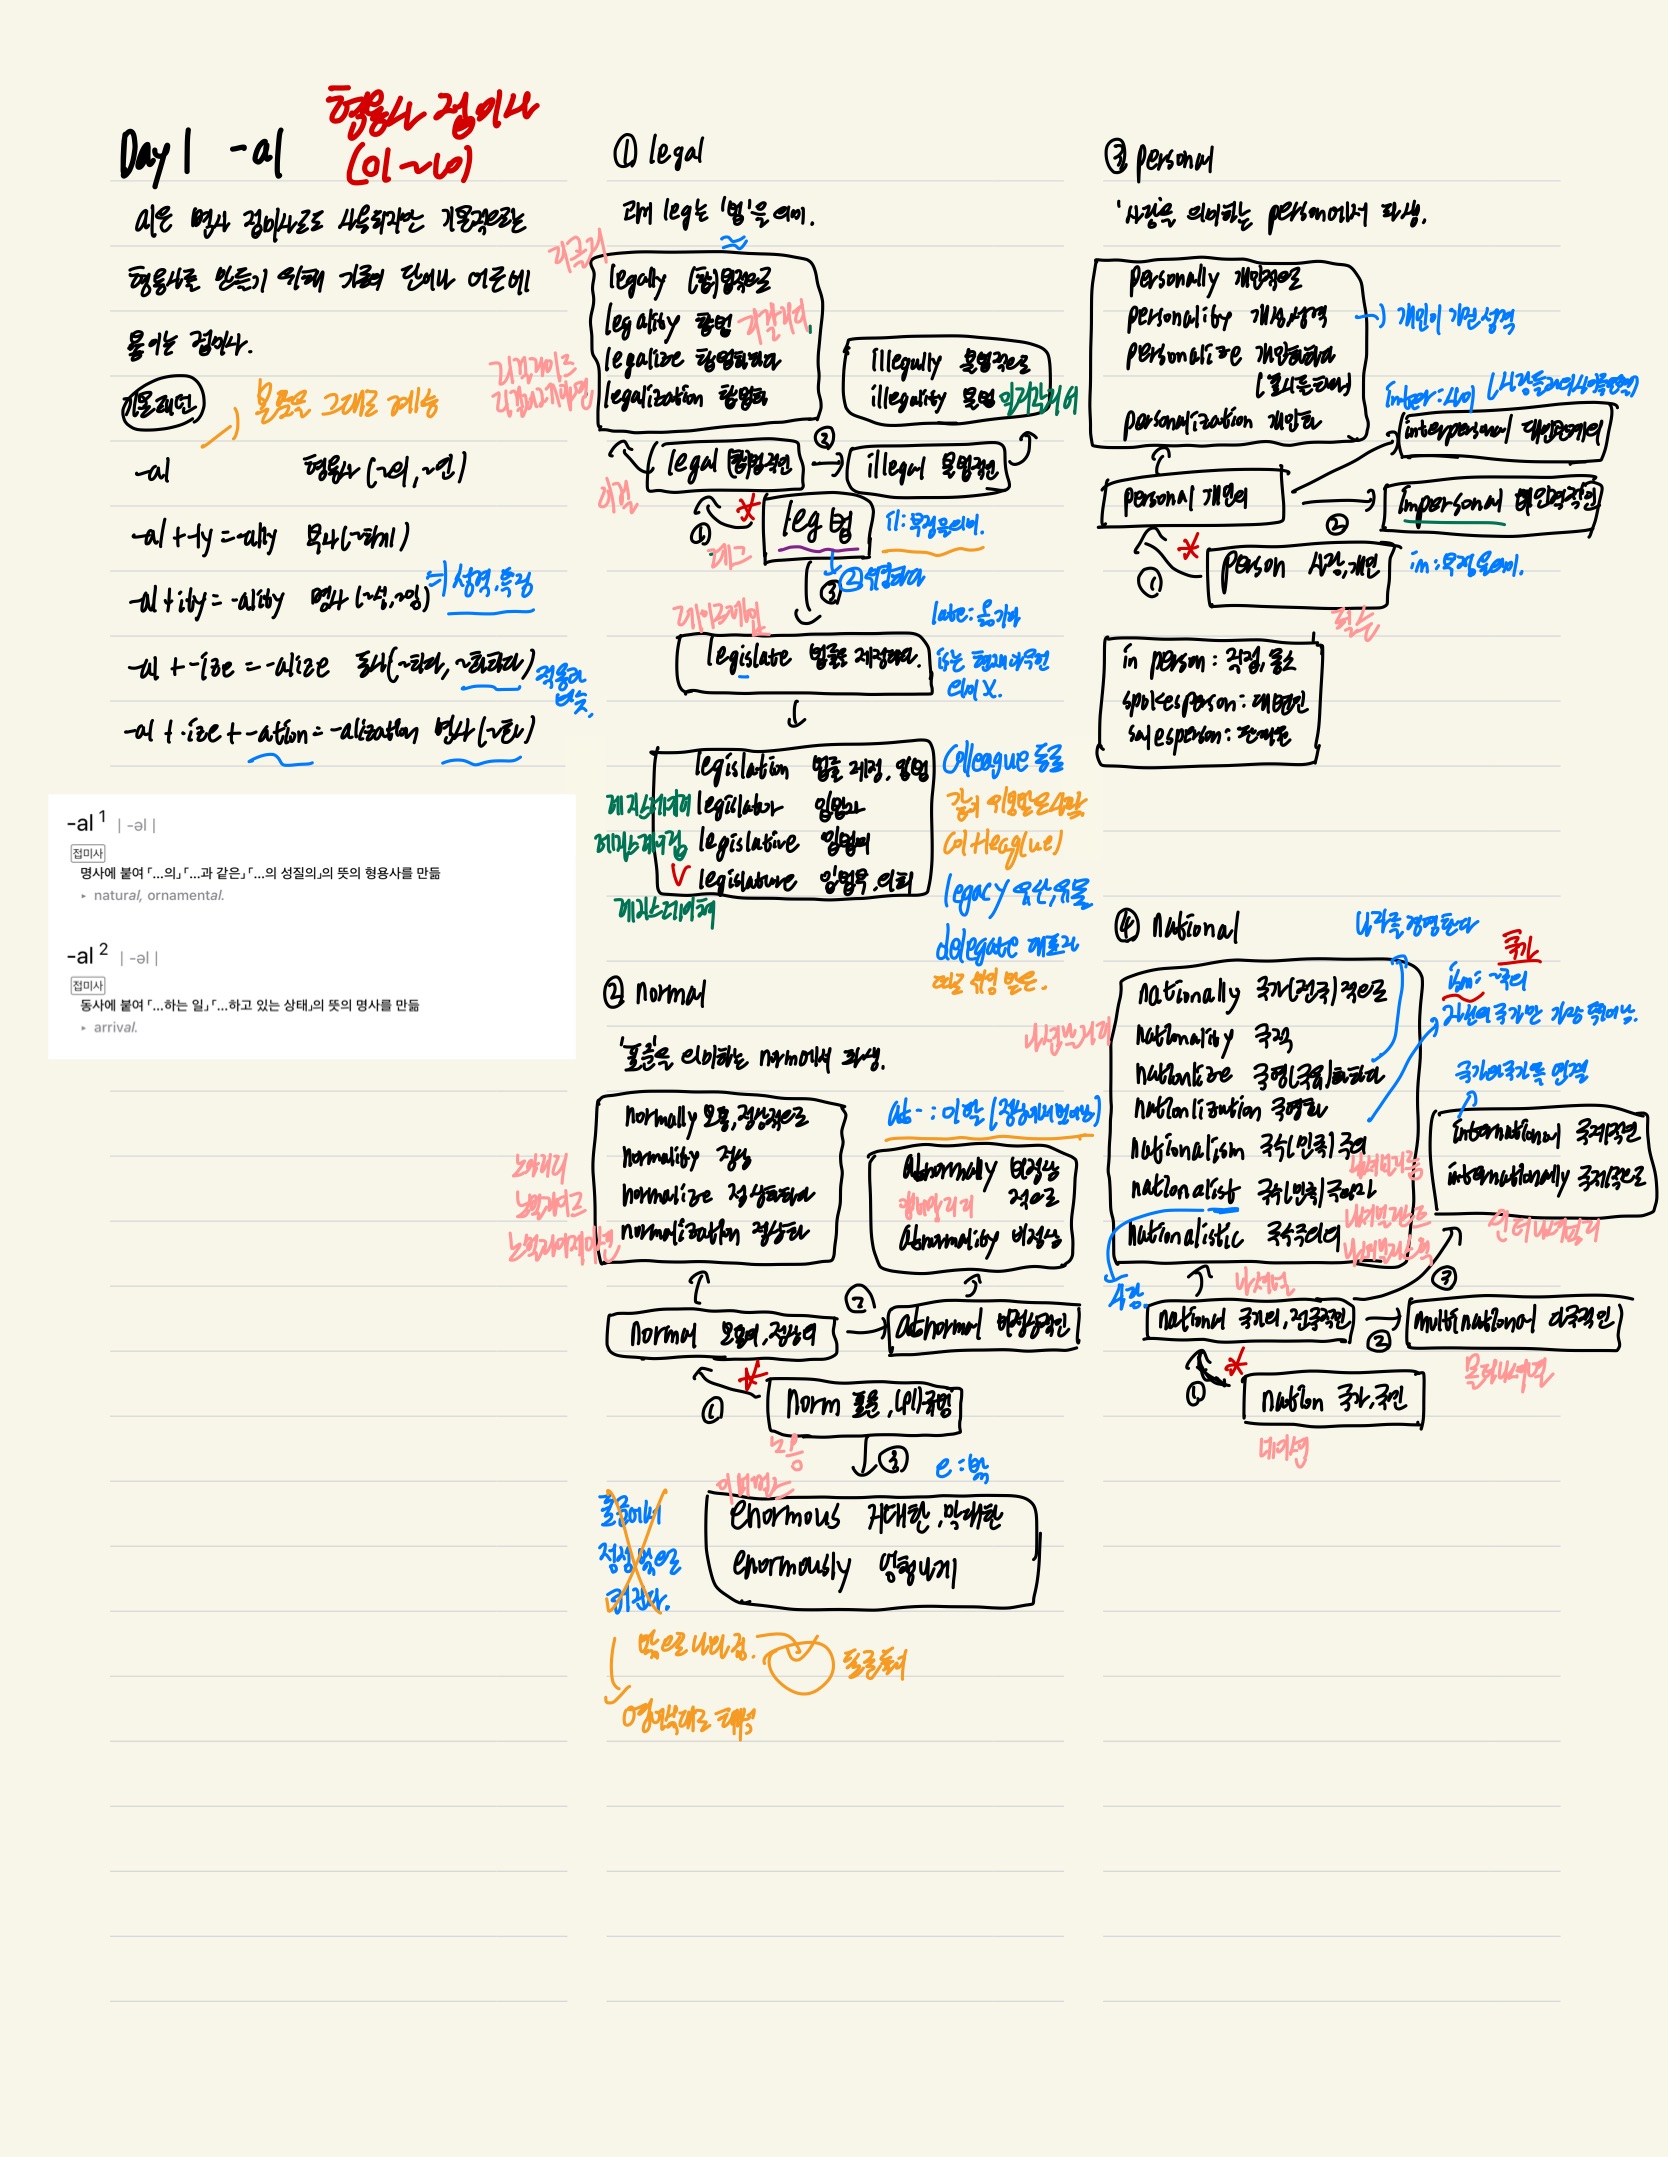 Day 1 -al
형용사 접미사
(01~10)
al은 명사 접미사로도 사용되지만 기본적으로는
형용사를 만들기 위해 기존의 단어나 어근에
붙이는 접미사.
기본패턴
-al 형용사 (~의, ~인)
-al + -ly = -ally 부사 (~하게)
-al + ity = -ality 명사 (~성, ~임)
성격, 특징
-al + -ize = -alize 동사 (~하다, ~화하다)
-al + -ize + -ation = -alization 명사 (~화)
-al 1 | -əl |
접미사
명사에 붙여 「…의」 「…과 같은」 「…의 성질의」의 뜻의 형용사를 만듦
▸ natural, ornamental.
-al 2 | -əl |
접미사
동사에 붙여 「…하는 일」 「…하고 있는 상태」의 뜻의 명사를 만듦
▸ arrival.
① legal
leg는 '법'을 의미.
legally (합)법적으로
legality 합법
legalize 합법화하다
legalization 합법화
illegally 불법적으로
illegality 불법
legal (합)법적인
② illegal 불법적인
① leg 법
il: 부정을 의미.
③
late: 옮기다
legislate 법률을 제정하다.
is는 현재 아무런
의미 X.
legislation 법률 제정, 입법
legislator 입법자
legislative 입법의
legislature 입법부, 의회
colleague 동료
legacy 유산, 유물
delegate 대표자
② normal
'표준'을 의미하는 norm에서 파생.
normally 보통, 정상적으로
normality 정상
normalize 정상화하다
normalization 정상화
ab-: 이탈
abnormally 비정상
적으로
abnormality 비정상
normal 보통의, 정상의
② abnormal 비정상적인
① norm 표준, (pl)규범
③ e: 밖
enormous 거대한, 막대한
enormously 엄청나게
밖으로
③ personal
'사람'을 의미하는 person에서 파생.
personally 개인적으로
personality 개성, 성격
개인이 가진 성격
personalize 개인화하다
personalization 개인화
inter: 사이
interpersonal 대인관계의
personal 개인의
② impersonal 비인격적인
① person 사람, 개인
in: 부정을 의미.
in person: 직접, 몸소
spokesperson: 대변인
salesperson: 판매원
④ national
나라를 경영한다
nationally 국가(전국)적으로
nationality 국적
nationlize 국영(국유)화하다
nationlization 국영화
nationalism 국수(민족)주의
nationalist 국수(민족)주의자
nationalistic 국수주의의
국가
ism: ~주의
자신의 국가만 가장 뛰어남.
국가와 국가를 연결
international 국제적인
internationally 국제적으로
사람
national 국가의, 전국적인
② multinational 다국적인
③
① nation 국가, 국민
네이션